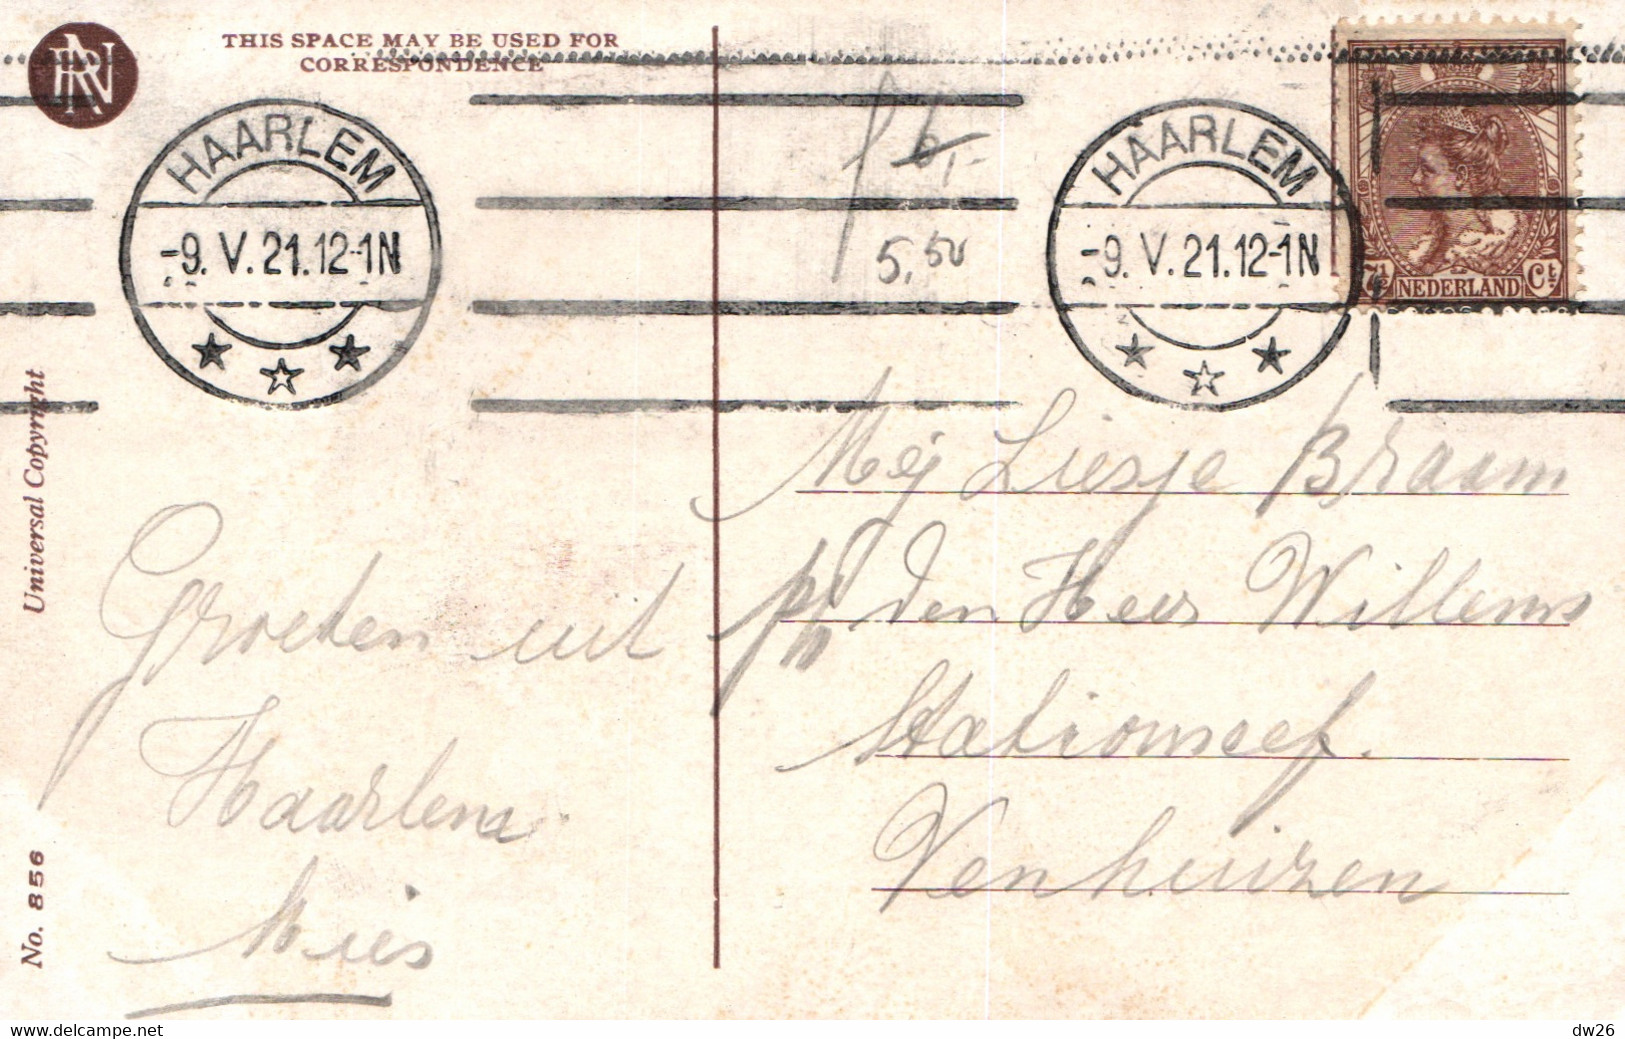 THIS SPACE MAY BE USED FOR
CORRESPONDENCE
HAARLEM
-9.V.21.12-1N
HAARLEM
-9.V.21.12-1N
7½ NEDERLAND Ct
6,-
5,50
Universal Copyright
No. 856
Groeten uit
Haarlem
Mies
Mej Liesje Braam
p/a den Heer Willems
Stationschef.
Venhuizen
www.delcampe.net
dw26